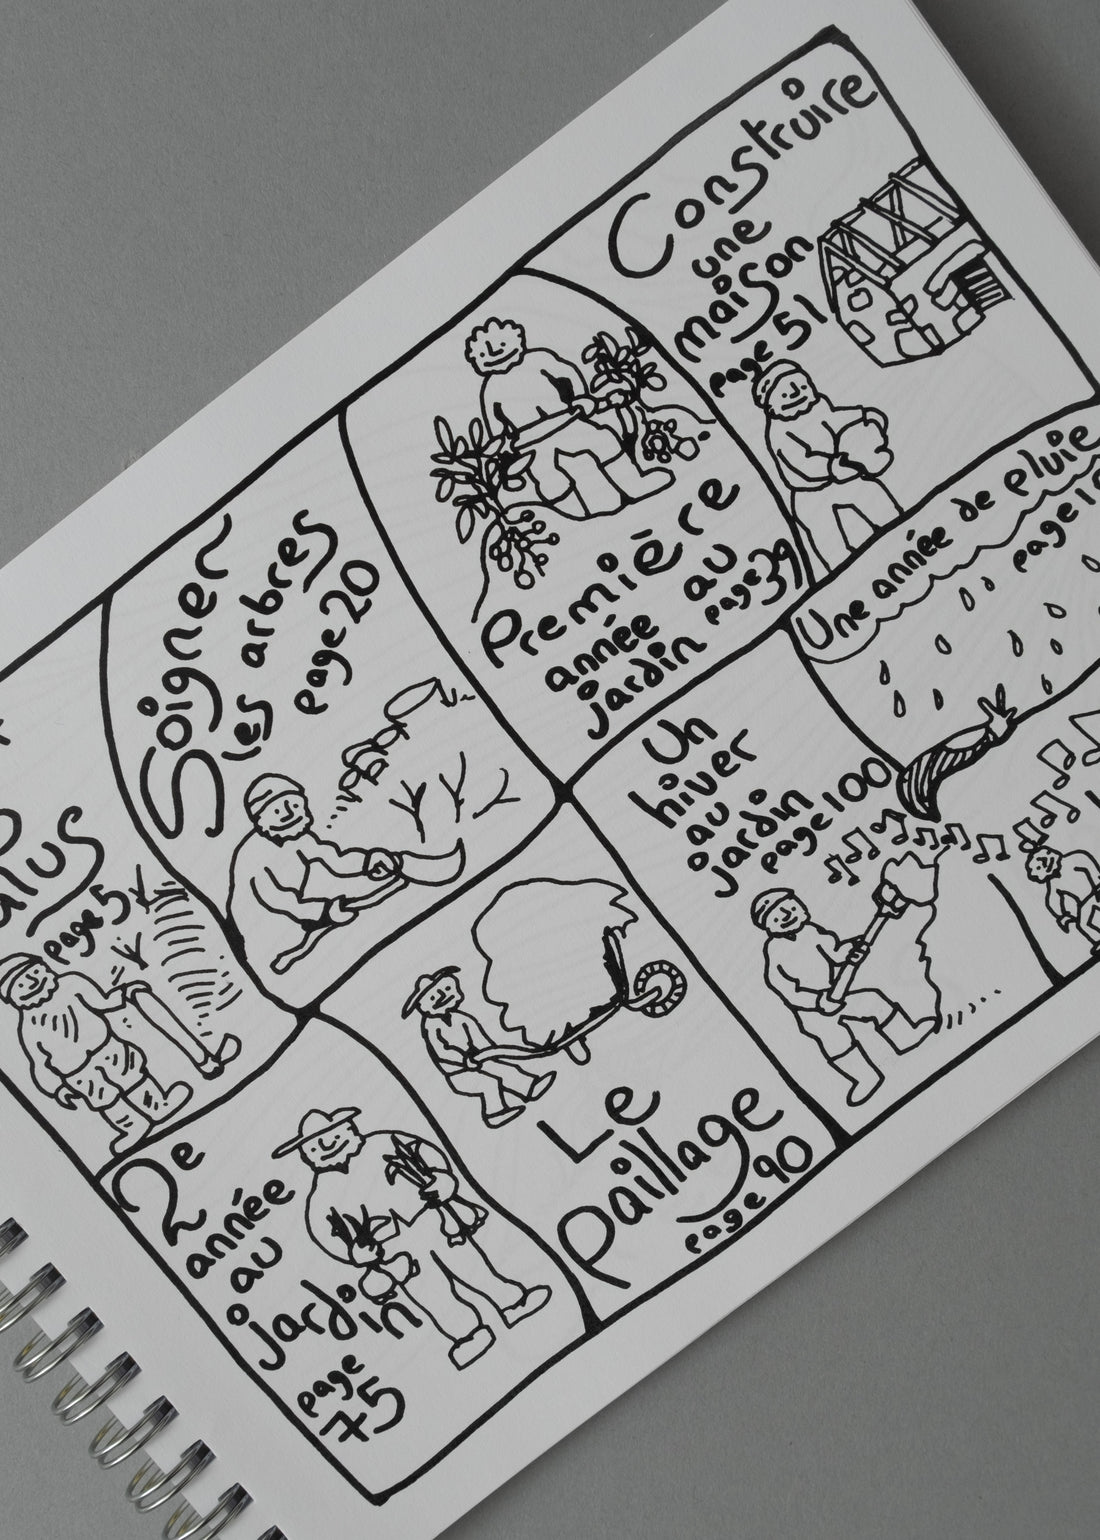 page 5
Soigner
les arbres
page 20
Première
année au
jardin page 39
Construire
une
maison
page 51
Une année de pluie
2e
année
au
jardin
page
75
Le
paillage
page 90
Un
hiver
au
jardin
page 100